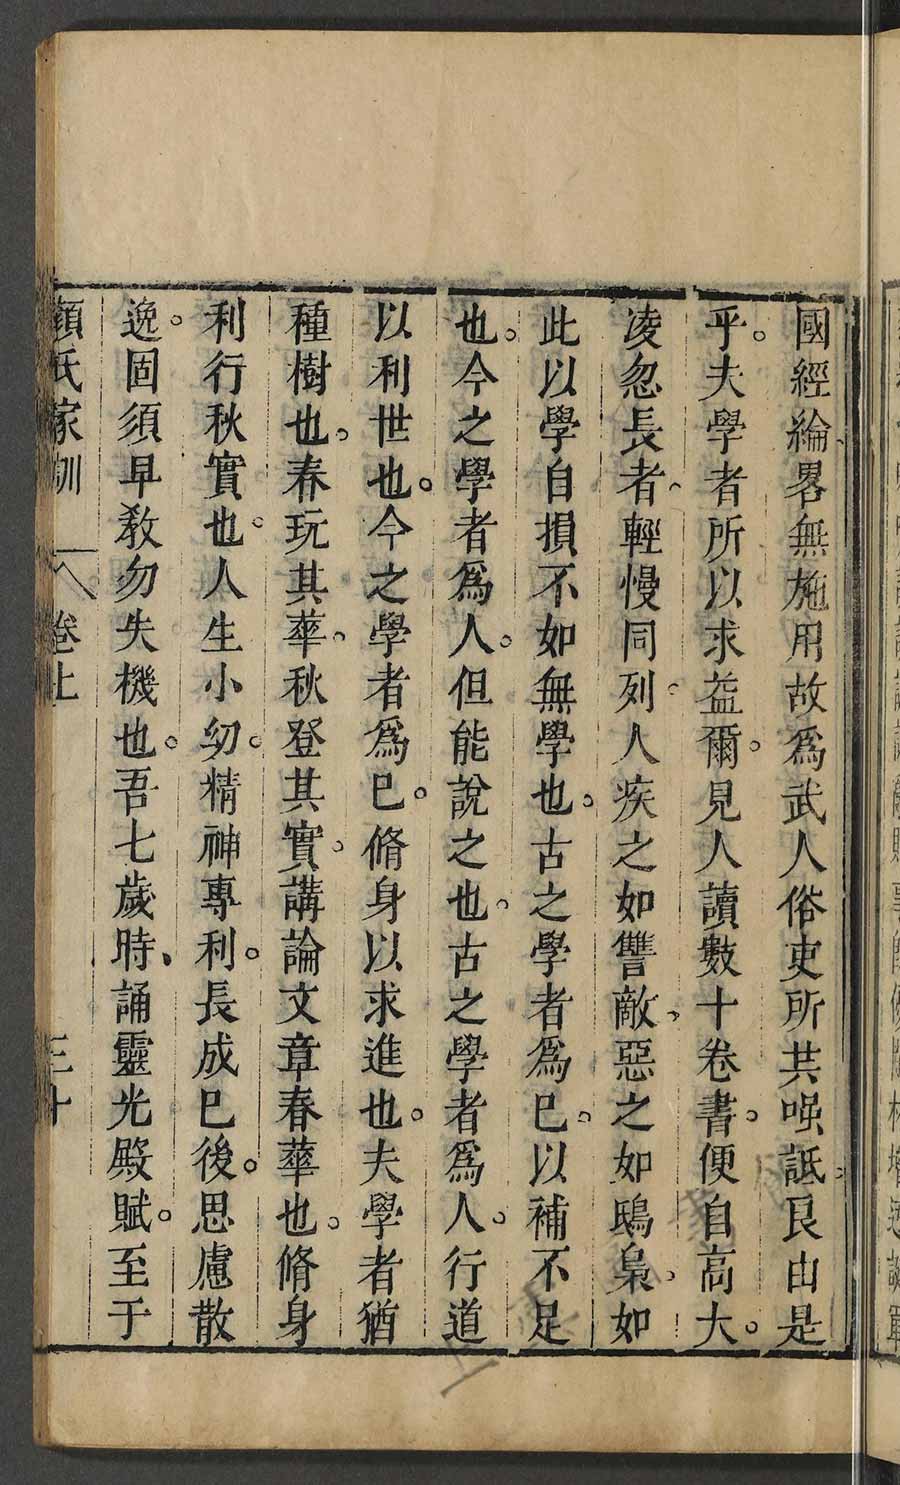 國經綸畧無施用故爲武人俗吏所共嗤詆良由是
乎。夫學者所以求益爾。見人讀數十卷書。便自高大。
凌忽長者。輕慢同列。人疾之如讐敵。惡之如鴟梟。如
此以學自損不如無學也。古之學者爲己。以補不足
也。今之學者爲人。但能說之也。古之學者爲人。行道
以利世也。今之學者爲己。脩身以求進也。夫學者猶
種樹也。春玩其華。秋登其實。講論文章春華也。脩身
利行秋實也。人生小幼。精神專利。長成已後。思慮散
逸。固須早教勿失機也。吾七歲時、誦靈光殿賦。至于
顏氏家訓 卷上 三十